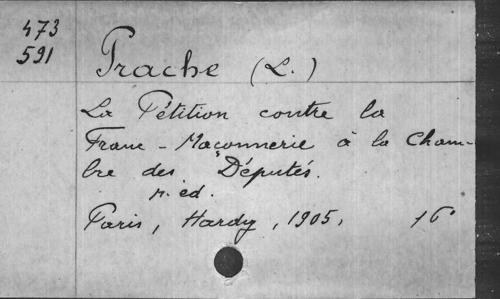 473
591
Prache (L.)
La Pétition contre la
Franc-Maçonnerie à la Cham-
bre des Députés.
n. éd.
Paris, Hardy, 1905, 16°